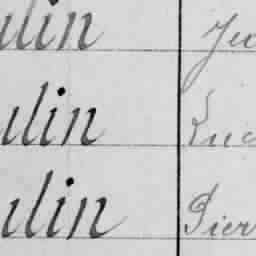 ulin Jea
ulin Luc
ulin Pier